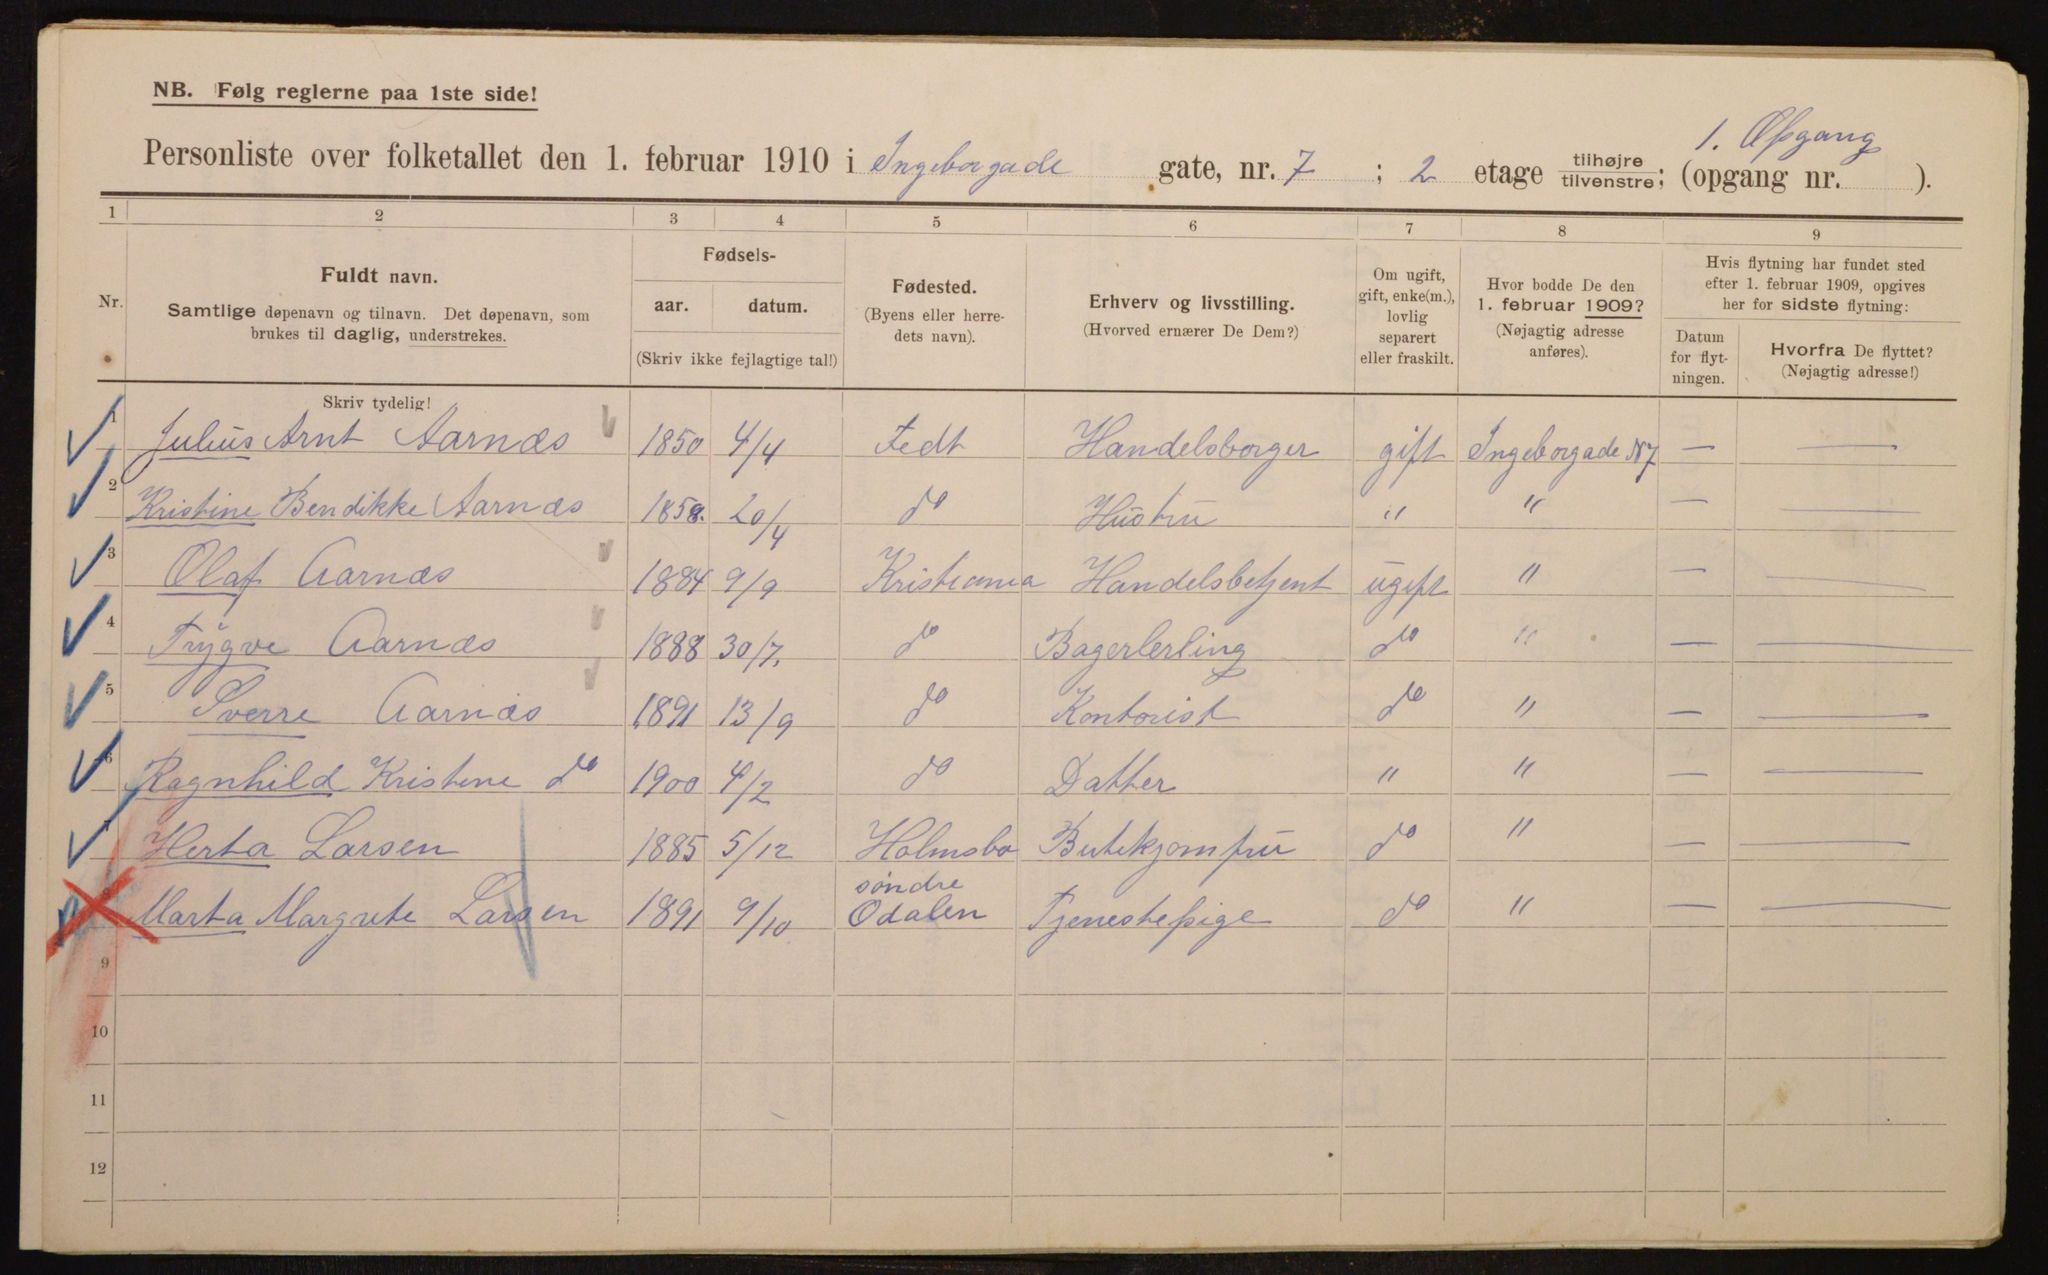 NB. Følg reglerne paa 1ste side!
1. Opgang
Personliste over folketallet den 1. februar 1910 i Ingeborgade gate, nr. 7 ; 2 etage tilhøjre/tilvenstre; (opgang nr. ).
1 2 3 4 5 6 7 8 9
Nr.
Fuldt navn.
Samtlige døpenavn og tilnavn. Det døpenavn, som
brukes til daglig, understrekes.
Skriv tydelig!
Fødsels-
aar. datum.
(Skriv ikke fejlagtige tal!)
Fødested.
(Byens eller herre-
dets navn).
Erhverv og livsstilling.
(Hvorved ernærer De Dem?)
Om ugift,
gift, enke(m.),
lovlig
separert
eller fraskilt.
Hvor bodde De den
1. februar 1909?
(Nøjagtig adresse
anføres).
Hvis flytning har fundet sted
efter 1. februar 1909, opgives
her for sidste flytning:
Datum
for flyt-
ningen.
Hvorfra De flyttet?
(Nøjagtig adresse!)
1 Julius Arnt Aarnæs 1850 4/4 Fedt Handelsborger gift Ingeborgade N 7 — —
2 Kristine Bendikke Aarnæs 1858. 20/4 do Hustru " " — —
3 Olaf Aarnæs 1884 9/9 Kristiania Handelsbetjent ugift " — —
4 Trygve Aarnæs 1888 30/7. do Bagerlerling do " — —
5 Sverre Aarnæs 1891 13/9 do Kontorist do " — —
6 Ragnhild Kristine do 1900 4/2 do Datter " " — —
7 Herta Larsen 1885 5/12 Holmsbo Butikjomfru do " — —
8 Marta Margrete Larsen 1891 9/10 søndre Odalen Tjenestepige do " — —
9
10
11
12